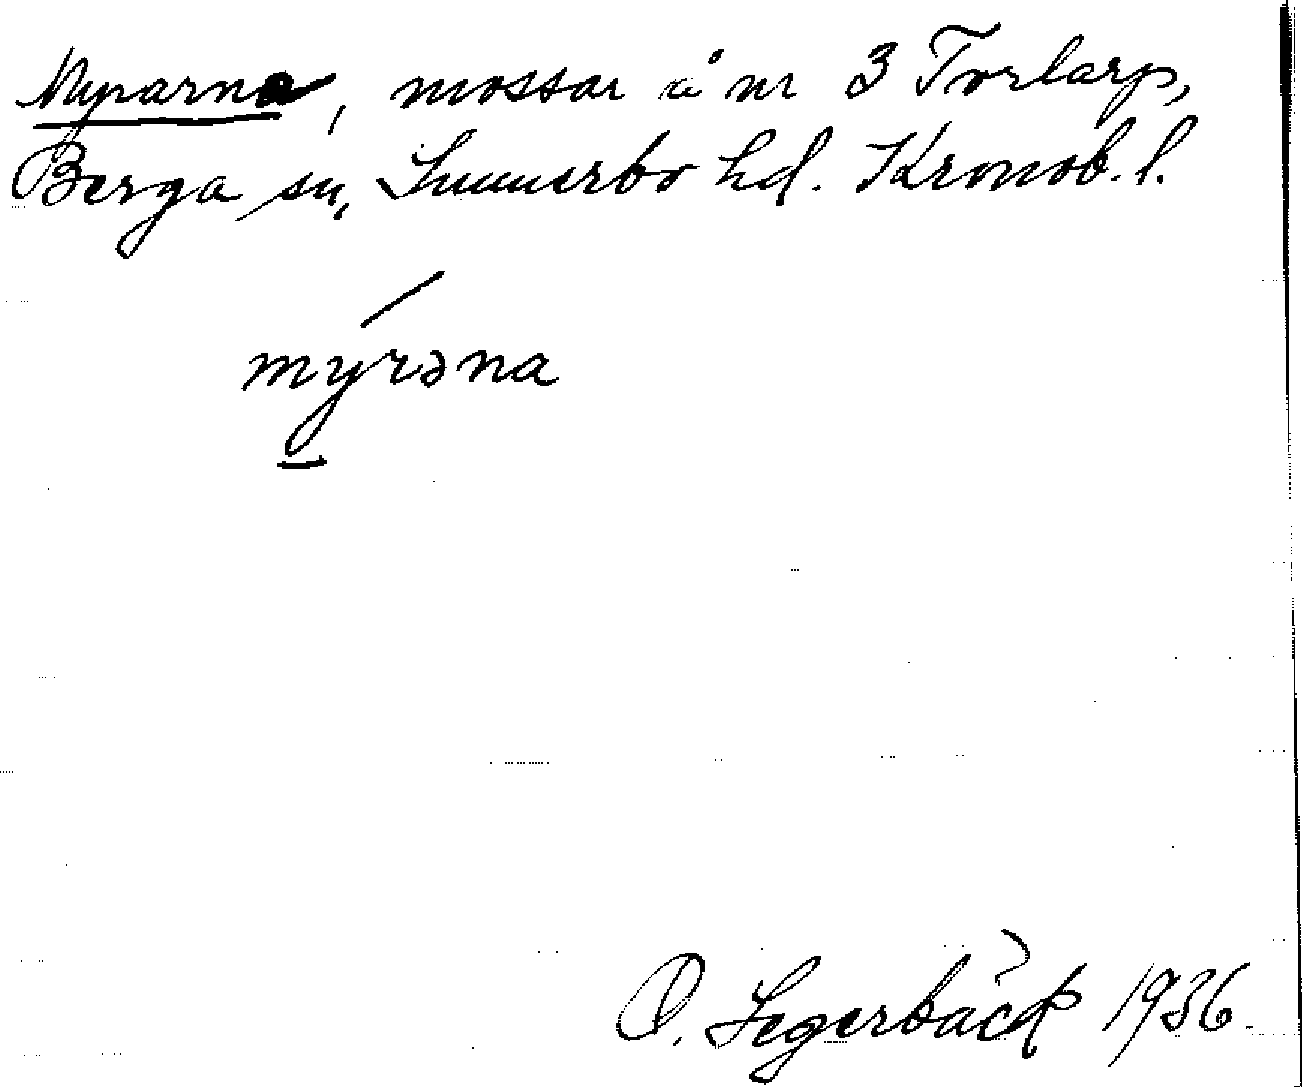 Myrarna, mossar å nr 3 Torlarp,
Berga sn, Sunnerbo hd. Kronob. l.
mýrəna
O. Segerbäck 1936.